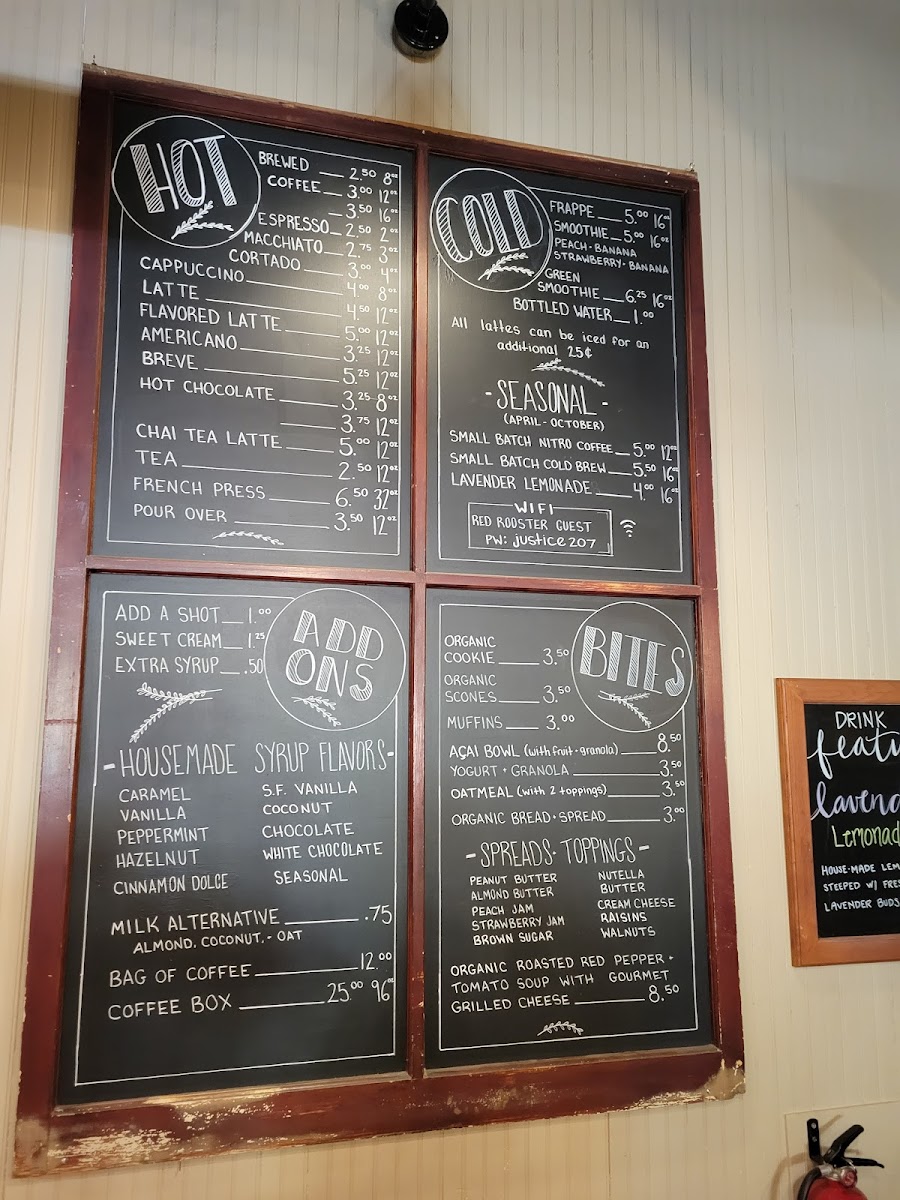 HOT
BREWED COFFEE 2.50 8oz
3.00 12oz
3.50 16oz
ESPRESSO 2.50 2oz
MACCHIATO 2.75 3oz
CORTADO 3.00 4oz
CAPPUCCINO 4.00 8oz
LATTE 4.50 12oz
FLAVORED LATTE 5.00 12oz
AMERICANO 3.25 12oz
BREVE 5.25 12oz
HOT CHOCOLATE 3.25 8oz
3.75 12oz
CHAI TEA LATTE 5.00 12oz
TEA 2.50 12oz
FRENCH PRESS 6.50 32oz
POUR OVER 3.50 12oz
COLD
FRAPPE 5.00 16oz
SMOOTHIE 5.00 16oz
PEACH - BANANA
STRAWBERRY - BANANA
GREEN
SMOOTHIE 6.25 16oz
BOTTLED WATER 1.00
All lattes can be iced for an
additional 25¢
- SEASONAL -
(APRIL - OCTOBER)
SMALL BATCH NITRO COFFEE 5.00 12oz
SMALL BATCH COLD BREW 5.50 16oz
LAVENDER LEMONADE 4.00 16oz
WIFI
RED ROOSTER GUEST
PW: justice207
ADD ONS
ADD A SHOT 1.00
SWEET CREAM 1.25
EXTRA SYRUP .50
- HOUSEMADE SYRUP FLAVORS -
CARAMEL S.F. VANILLA
VANILLA COCONUT
PEPPERMINT CHOCOLATE
HAZELNUT WHITE CHOCOLATE
CINNAMON DOLCE SEASONAL
MILK ALTERNATIVE .75
ALMOND, COCONUT, - OAT
BAG OF COFFEE 12.00
COFFEE BOX 25.00 96oz
BITES
ORGANIC
COOKIE 3.50
ORGANIC
SCONES 3.50
MUFFINS 3.00
AÇAI BOWL (with fruit + granola) 8.50
YOGURT + GRANOLA 3.50
OATMEAL (with 2 toppings) 3.50
ORGANIC BREAD + SPREAD 3.00
- SPREADS + TOPPINGS -
PEANUT BUTTER NUTELLA
ALMOND BUTTER BUTTER
PEACH JAM CREAM CHEESE
STRAWBERRY JAM RAISINS
BROWN SUGAR WALNUTS
ORGANIC ROASTED RED PEPPER +
TOMATO SOUP WITH GOURMET
GRILLED CHEESE 8.50
DRINK
featu
lavend
Lemonad
HOUSE-MADE LEM
STEEPED W/ FRES
LAVENDER BUDS